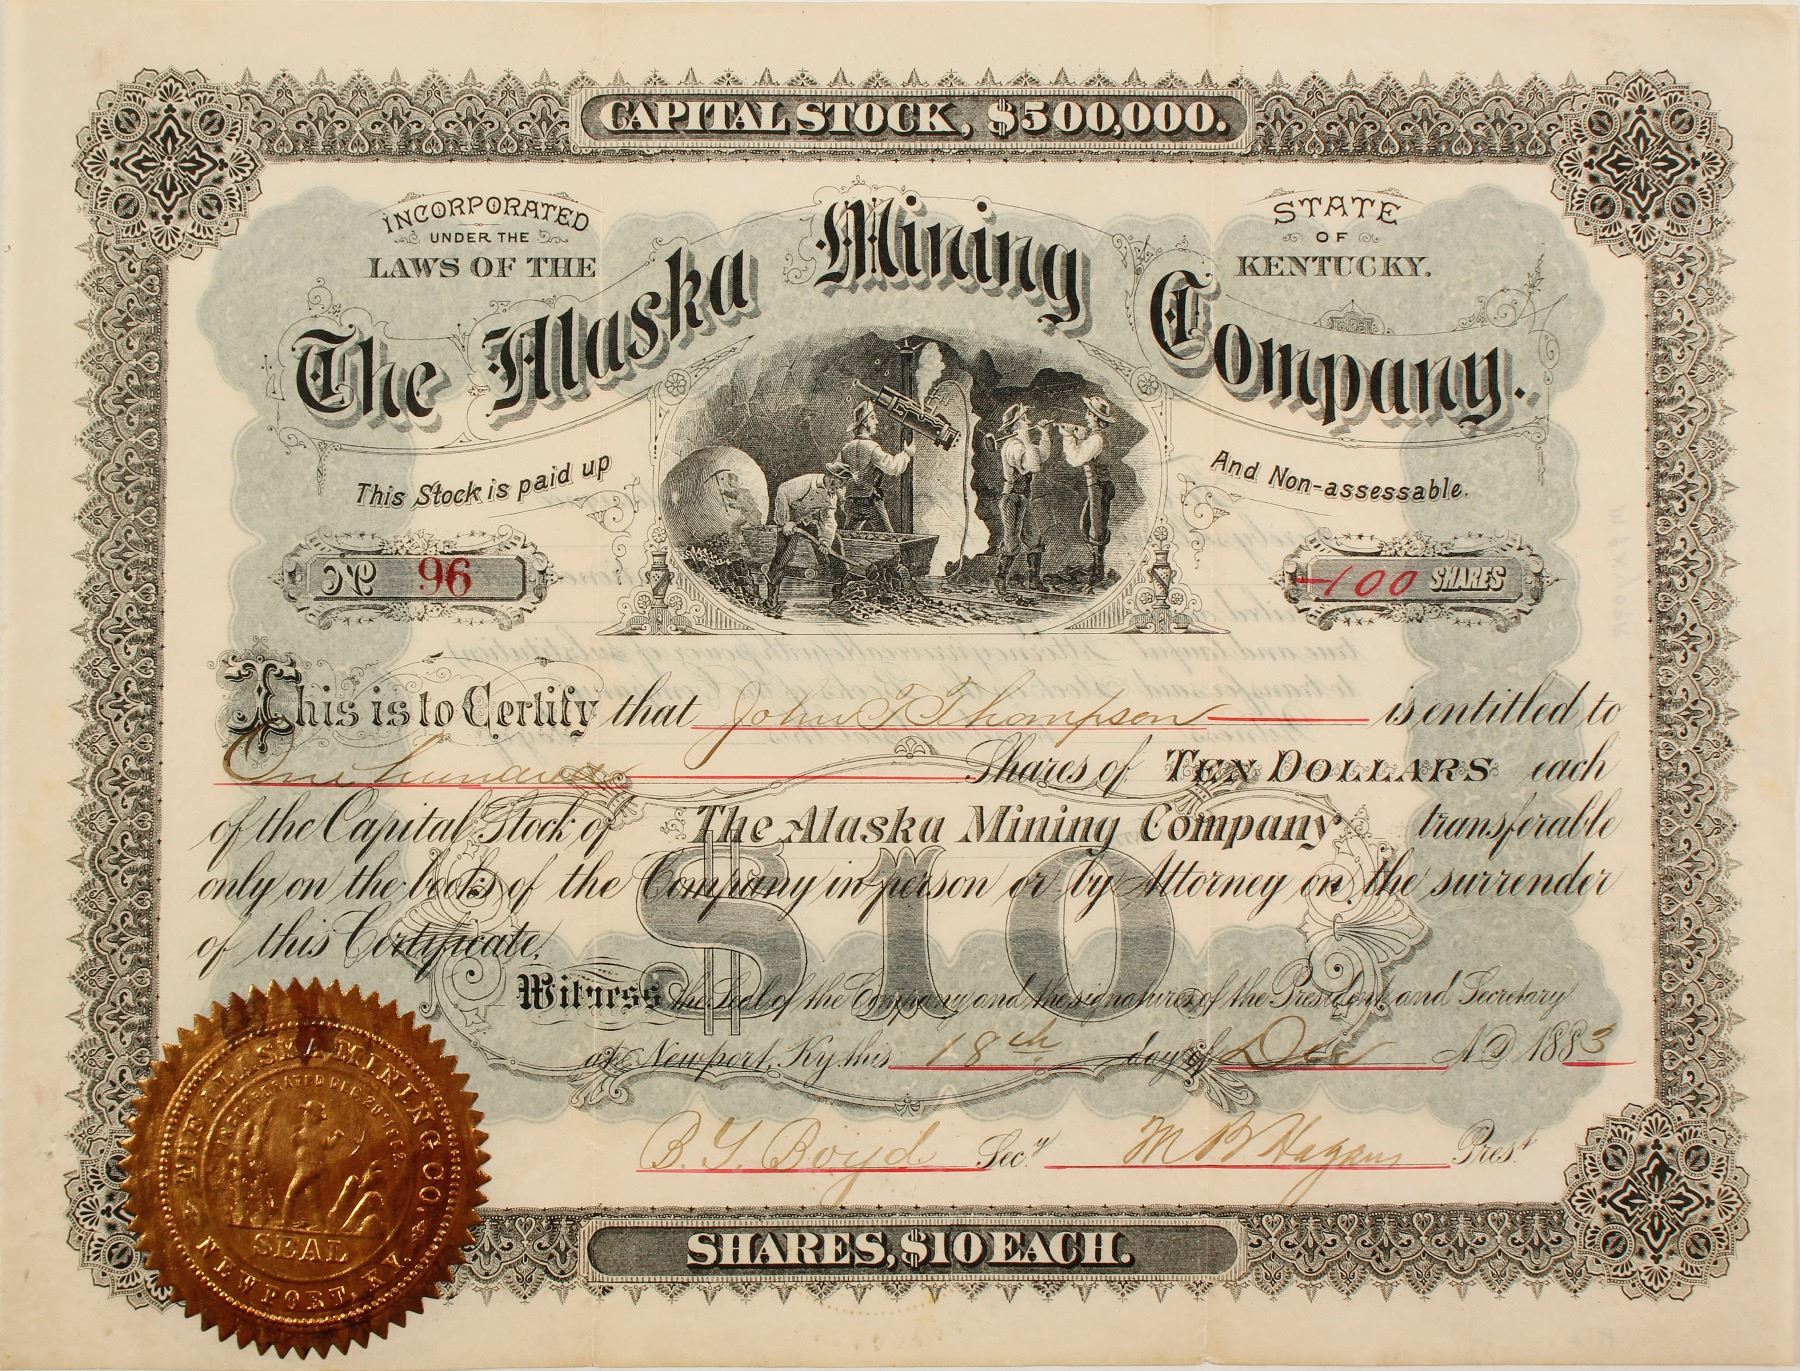 CAPITAL STOCK, $500,000.
INCORPORATED
UNDER THE
LAWS OF THE
STATE
OF
KENTUCKY.
The Alaska Mining Company.
This Stock is paid up
And Non-assessable.
No 96
100 SHARES
This is to Certify that John T Thompson is entitled to
One hundred Shares of TEN DOLLARS each
of the Capital Stock of The Alaska Mining Company transferable
only on the books of the Company in person or by Attorney on the surrender
of this Certificate.
$10
Witness the Seal of the Company and the signatures of the President and Secretary
at Newport, Ky. this 18th day of Dec A.D. 1883
B. Y. Boyd Secy
M B Haggans Prest
THE ALASKA MINING CO.
INCORPORATED DEC. 20 1882.
SEAL
NEWPORT, KY.
SHARES, $10 EACH.